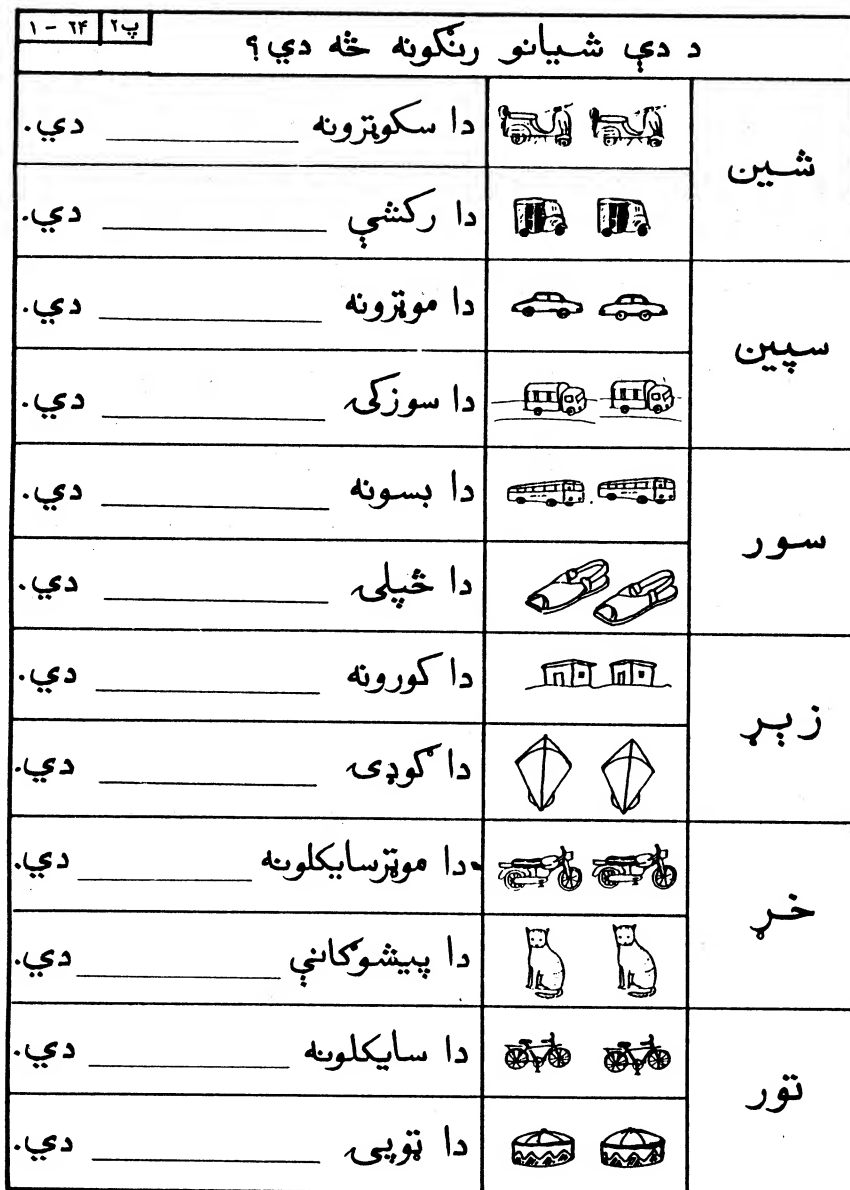 پ۲ ۶۴ - ۱
د دې شیانو رنګونه څه دي؟
شین
دا سکوټرونه __________ دي.
دا رکشې __________ دي.
سپین
دا موټرونه __________ دي.
دا سوزکۍ __________ دي.
سور
دا بسونه __________ دي.
دا څپلۍ __________ دي.
زېړ
دا کورونه __________ دي.
دا ګوډۍ __________ دي.
خړ
دا موټرسایکلونه __________ دي.
دا پیشوګانې __________ دي.
تور
دا سایکلونه __________ دي.
دا ټوپۍ __________ دي.